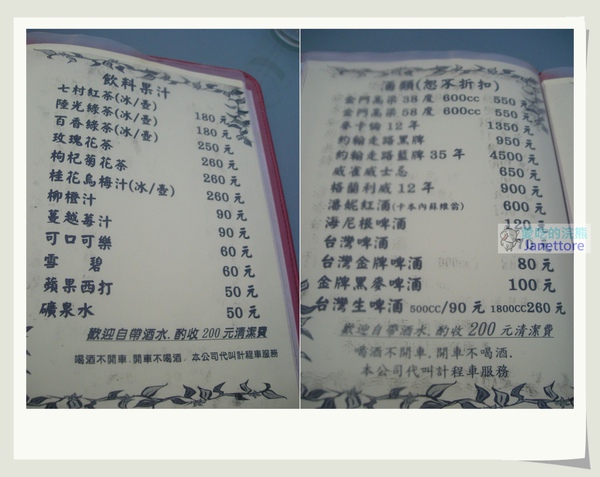 飲料果汁
七村紅茶(冰/壺) 180元
陸光綠茶(冰/壺) 180元
百香綠茶(冰/壺) 250元
玫瑰花茶 260元
枸杞菊花茶 260元
桂花烏梅汁(冰/壺) 260元
柳橙汁 90元
蔓越莓汁 90元
可口可樂 60元
雪 碧 60元
蘋果西打 50元
礦泉水 50元
歡迎自帶酒水,酌收200元清潔費
喝酒不開車.開車不喝酒. 本公司代叫計程車服務
酒類(恕不折扣)
金門高粱 38 度 600cc 550元
金門高粱 58 度 600cc 550元
麥卡倫 12 年 1350元
約翰走路黑牌 950元
約翰走路藍牌 35 年 4500元
威雀威士忌 650元
格蘭利威 12 年 900元
潘妮紅酒(卡本內蘇維翁) 600元
海尼根啤酒 120元
台灣啤酒 70元
台灣金牌啤酒 80元
金牌黑麥啤酒 100元
台灣生啤酒 500CC/90元 1800CC260元
歡迎自帶酒水,酌收200元清潔費
喝酒不開車.開車不喝酒.
本公司代叫計程車服務
的浣熊
Janettore